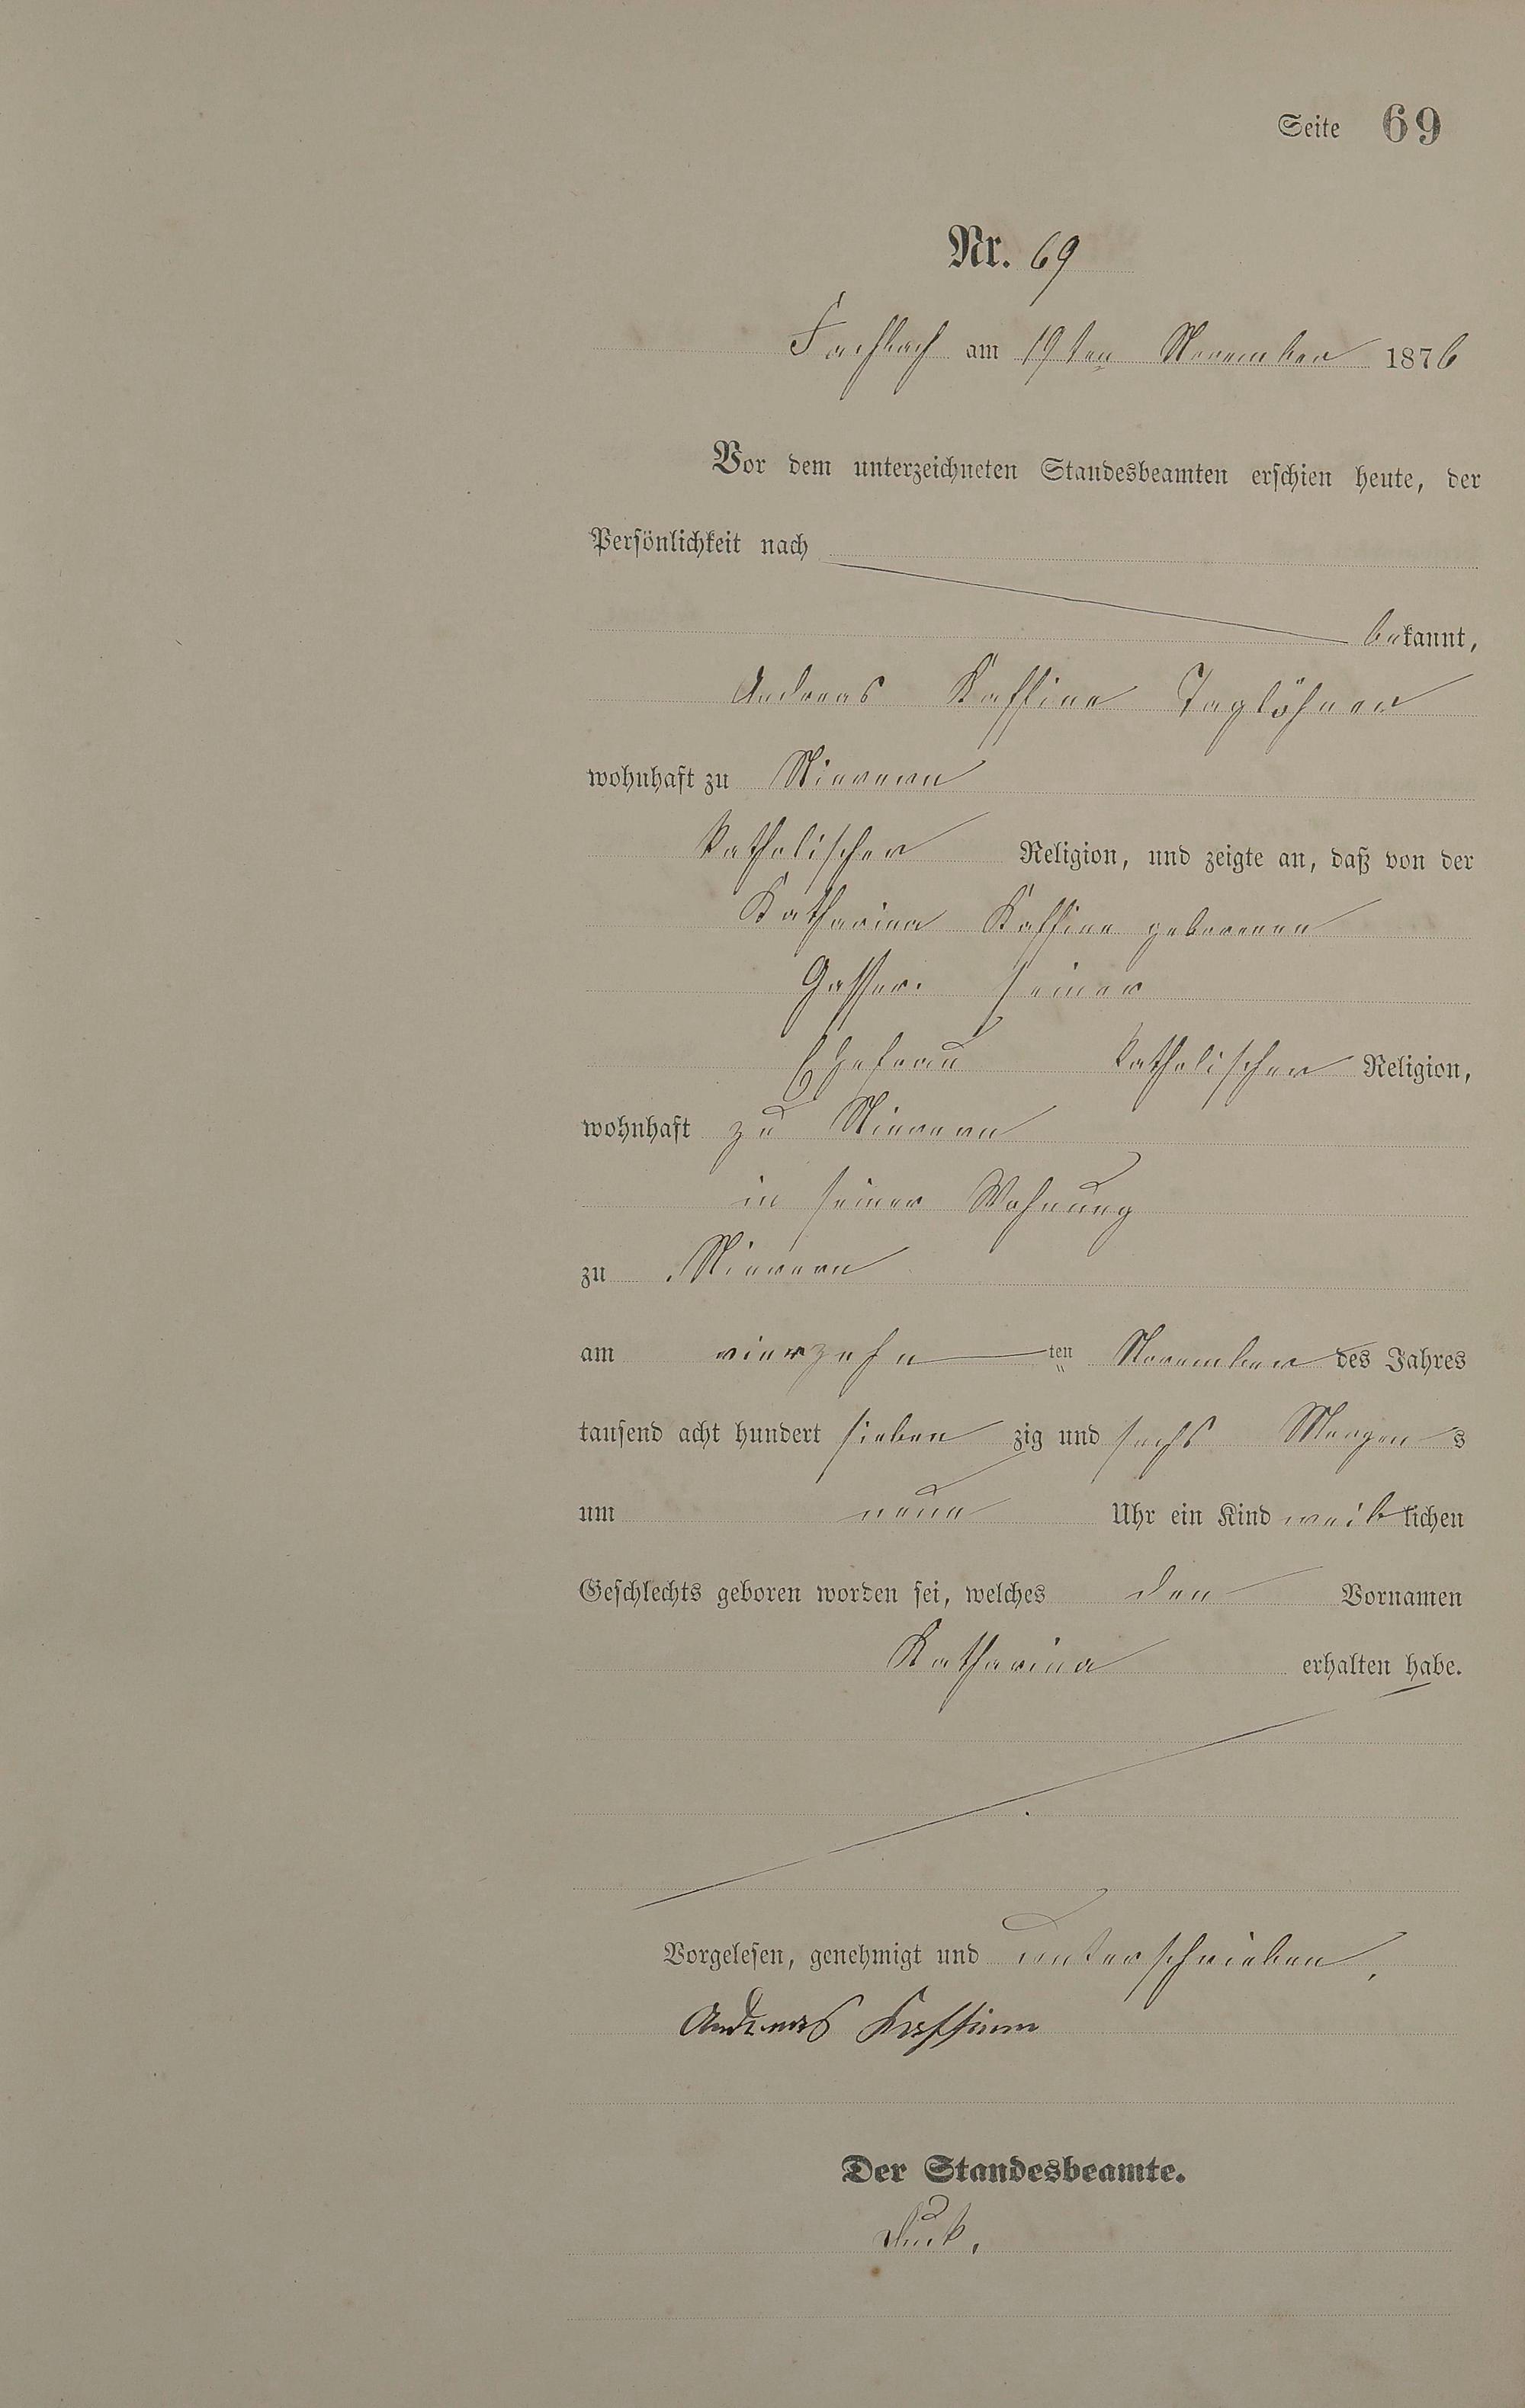 Seite 69
Nr. 69
Fachbach am 19ten November 1876
Vor dem unterzeichneten Standesbeamten erschien heute, der
Persönlichkeit nach
bekannt,
Andreas Kaffine Taglöhner
wohnhaft zu Nievern
katholischer Religion, und zeigte an, daß von der
Katharina Kaffine geborenen
seiner
Ehefrau katholischer Religion,
wohnhaft zu Nievern
in seiner Wohnung
zu Nievern
am vierzehn ten November des Jahres
tausend acht hundert sieben zig und sechs Morgens
um neun Uhr ein Kind weiblichen
Geschlechts geboren worden sei, welches den Vornamen
Katharina erhalten habe.
Vorgelesen, genehmigt und unterschrieben,
Andreas
Der Standesbeamte.